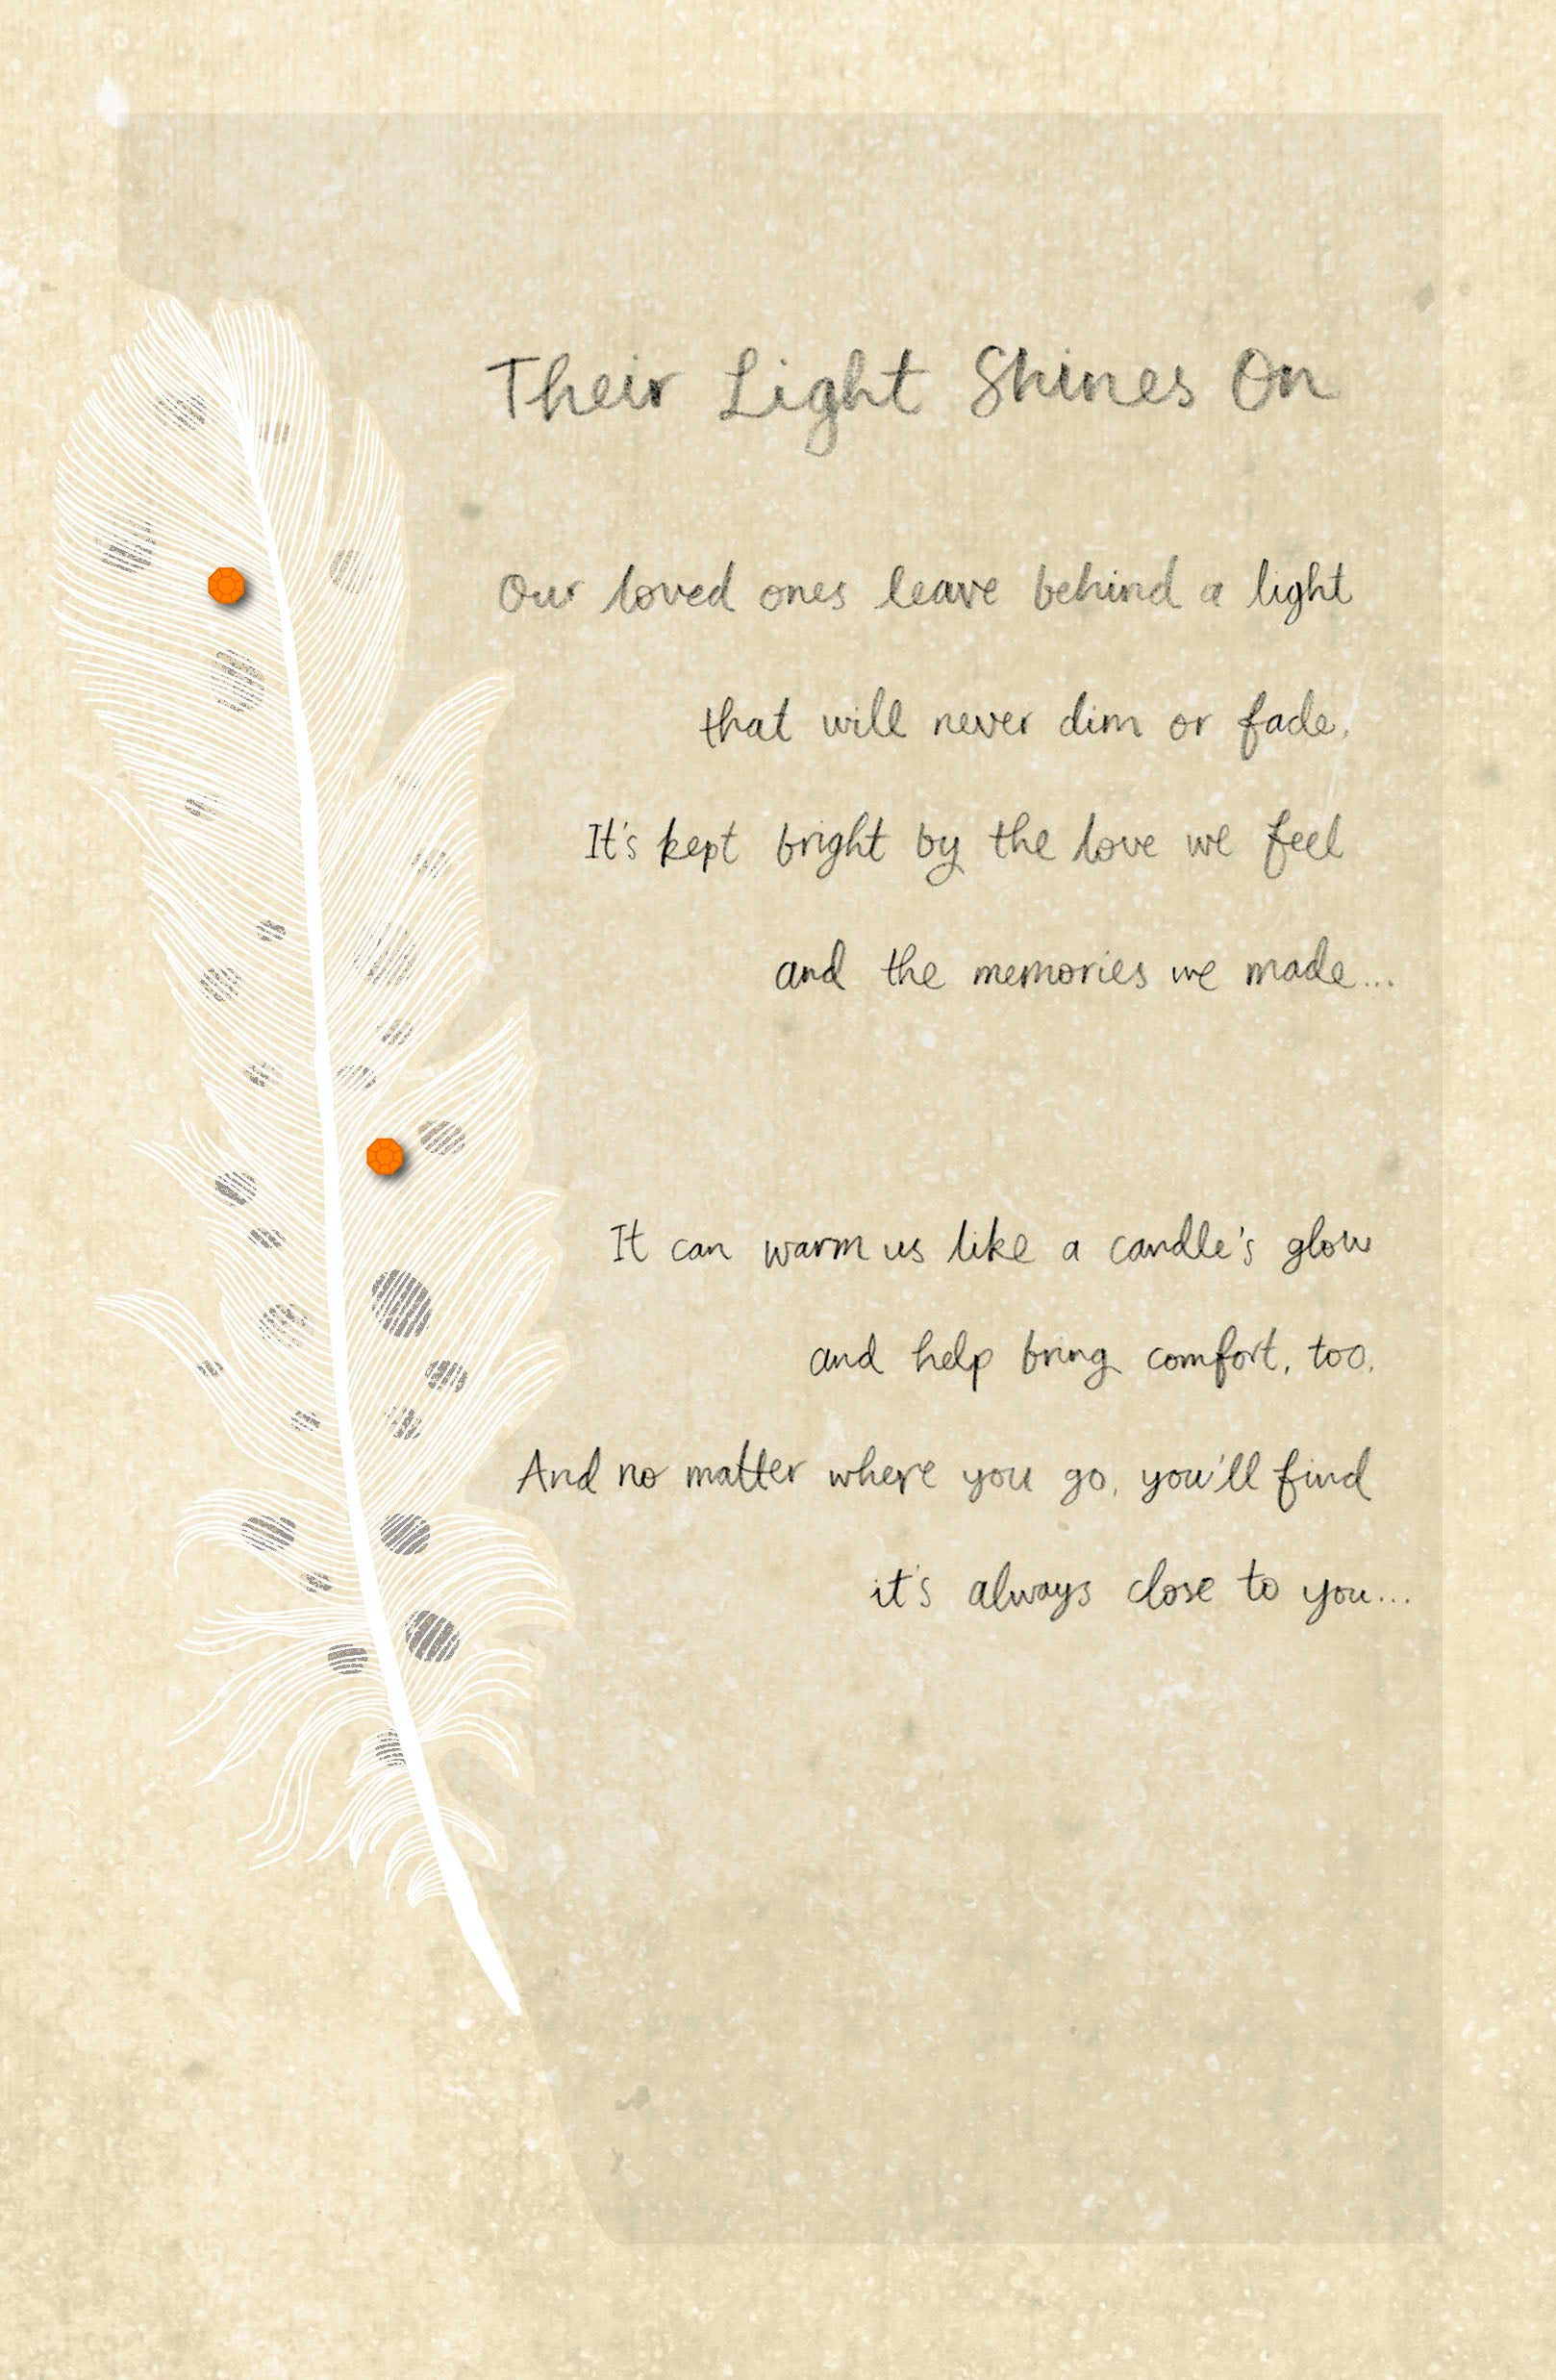 Their Light Shines On
Our loved ones leave behind a light
that will never dim or fade.
It's kept bright by the love we feel
and the memories we made...
It can warm us like a candle's glow
and help bring comfort, too.
And no matter where you go, you'll find
it's always close to you...